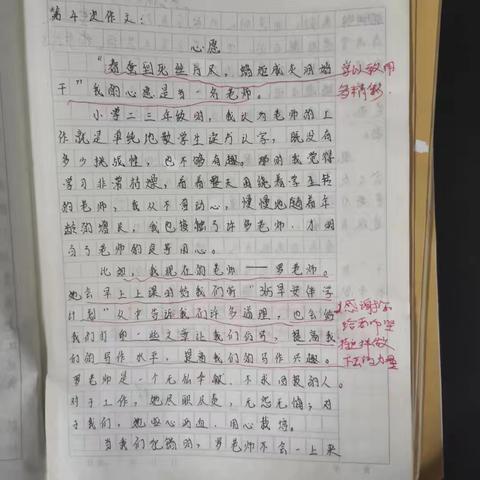 第4次作文:
心愿
"春蚕到死丝方尽,蜡炬成灰泪始
干"我的心愿是当一名老师。
小学二三年级时,我认为老师的工
作就是单纯地教学生读书认字,既没有
多少挑战性,也不够有趣。那时我觉得
学习非常枯燥,看着整天围绕着学生转
的老师,我从不曾动心,慢慢地随着年
龄的增长,我也接触了许多老师,才明
白了老师的良苦用心。
比如,我现在的老师——罗老师。
她会早上上课时给我们听"365早安伴学
计划"从中告诉我们许多道理,也会给
我们打印一些文章让我们仿写,提高我
们的写作水平,提高我们的写作兴趣。
罗老师是一个无私奉献、不求回报的人。
对于工作,她尽职尽责,无怨无悔;对
于我们,她呕心沥血,用心教导。
当我们犯错时,罗老师不会一上来
学以致用
多精彩.
感谢你
给老师坚
持做
下去的力量